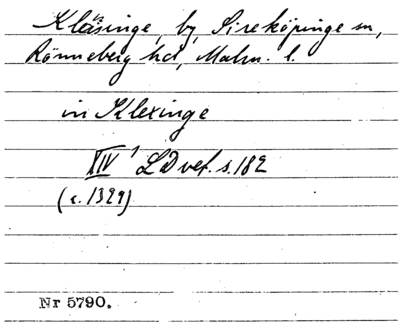 Kläsinge, by, Sireköpinge sn,
Rönneberg hd, Malm. l.
in Klexinge
XIV¹ LDvet. s. 182
(c. 1329)
Nr 5790.